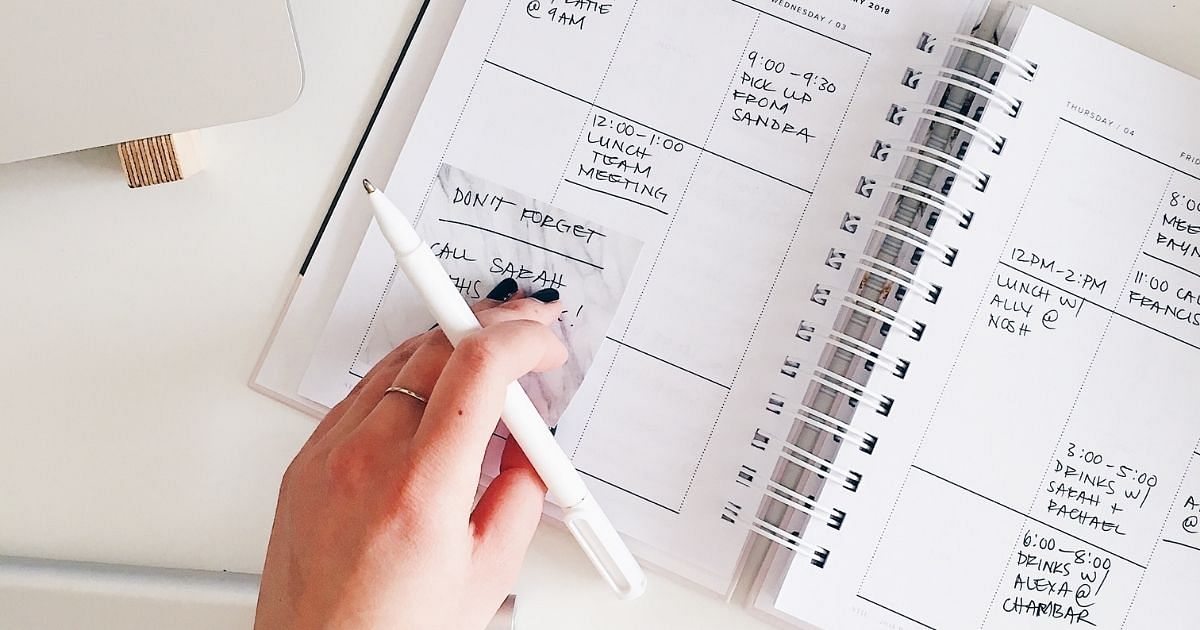 @ 9AM
2018
WEDNESDAY / 03
9:00 - 9:30
PICK UP
FROM
SANDRA
12:00 - 1:00
LUNCH
TEAM
MEETING
DON'T FORGET
CALL SARAH
THURSDAY / 04
12PM - 2:PM
LUNCH W/
ALLY @
NOSH
11:00
3:00 - 5:00
DRINKS W/
SARAH +
RACHAEL
6:00 - 8:00
DRINKS W/
ALEXA @
CHAMBAR